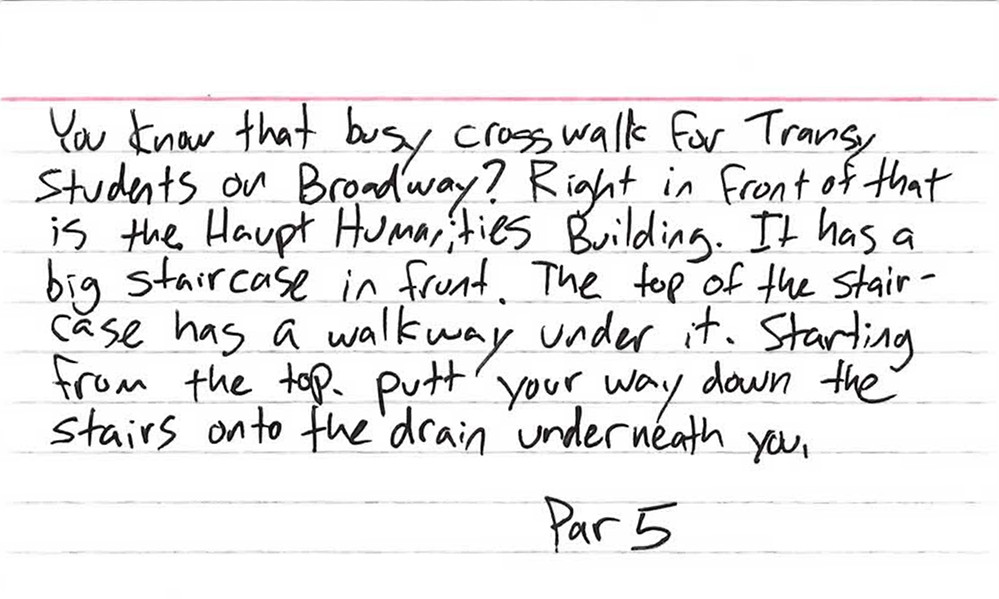 You know that busy crosswalk for Transy
Students on Broadway? Right in front of that
is the Haupt Humanities Building. It has a
big staircase in front. The top of the stair-
case has a walkway under it. Starting
from the top, putt your way down the
stairs onto the drain underneath you.
Par 5